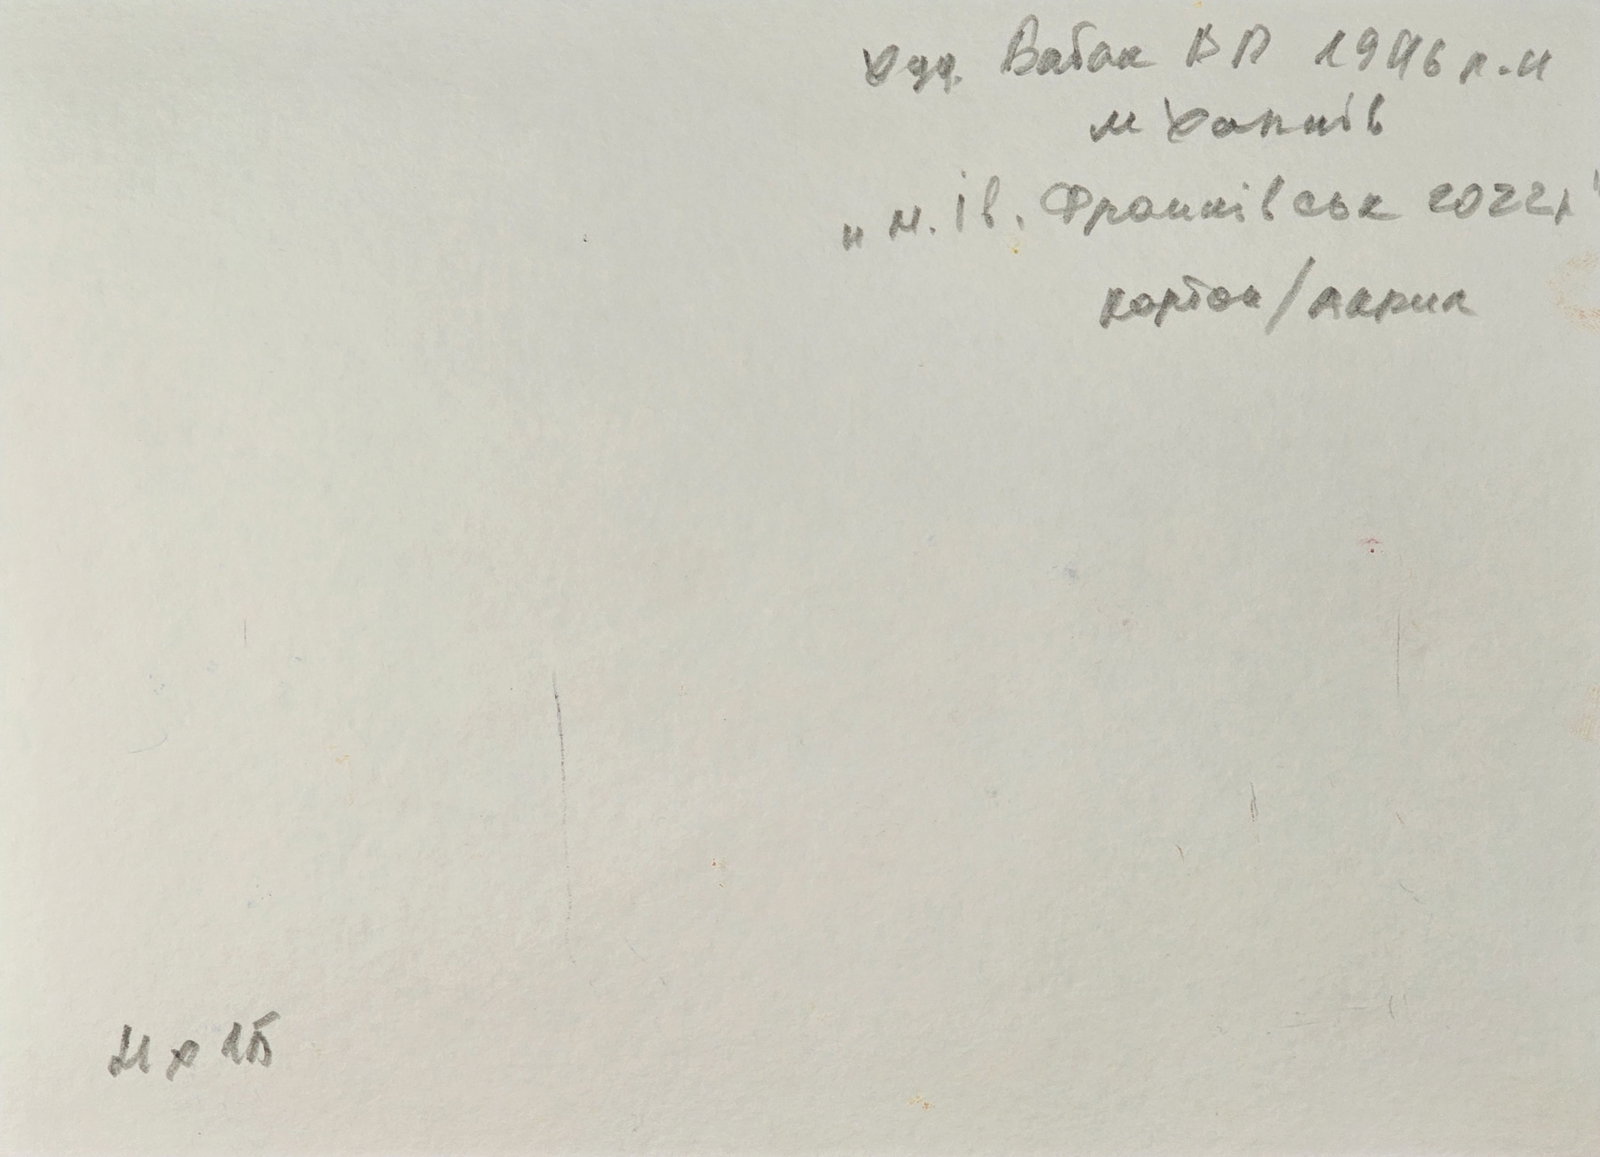 худ. Вабак В П 1946 р.н
м Харків
„м. Ів. Франківськ 2022р"
картон/акрил
21 х 15